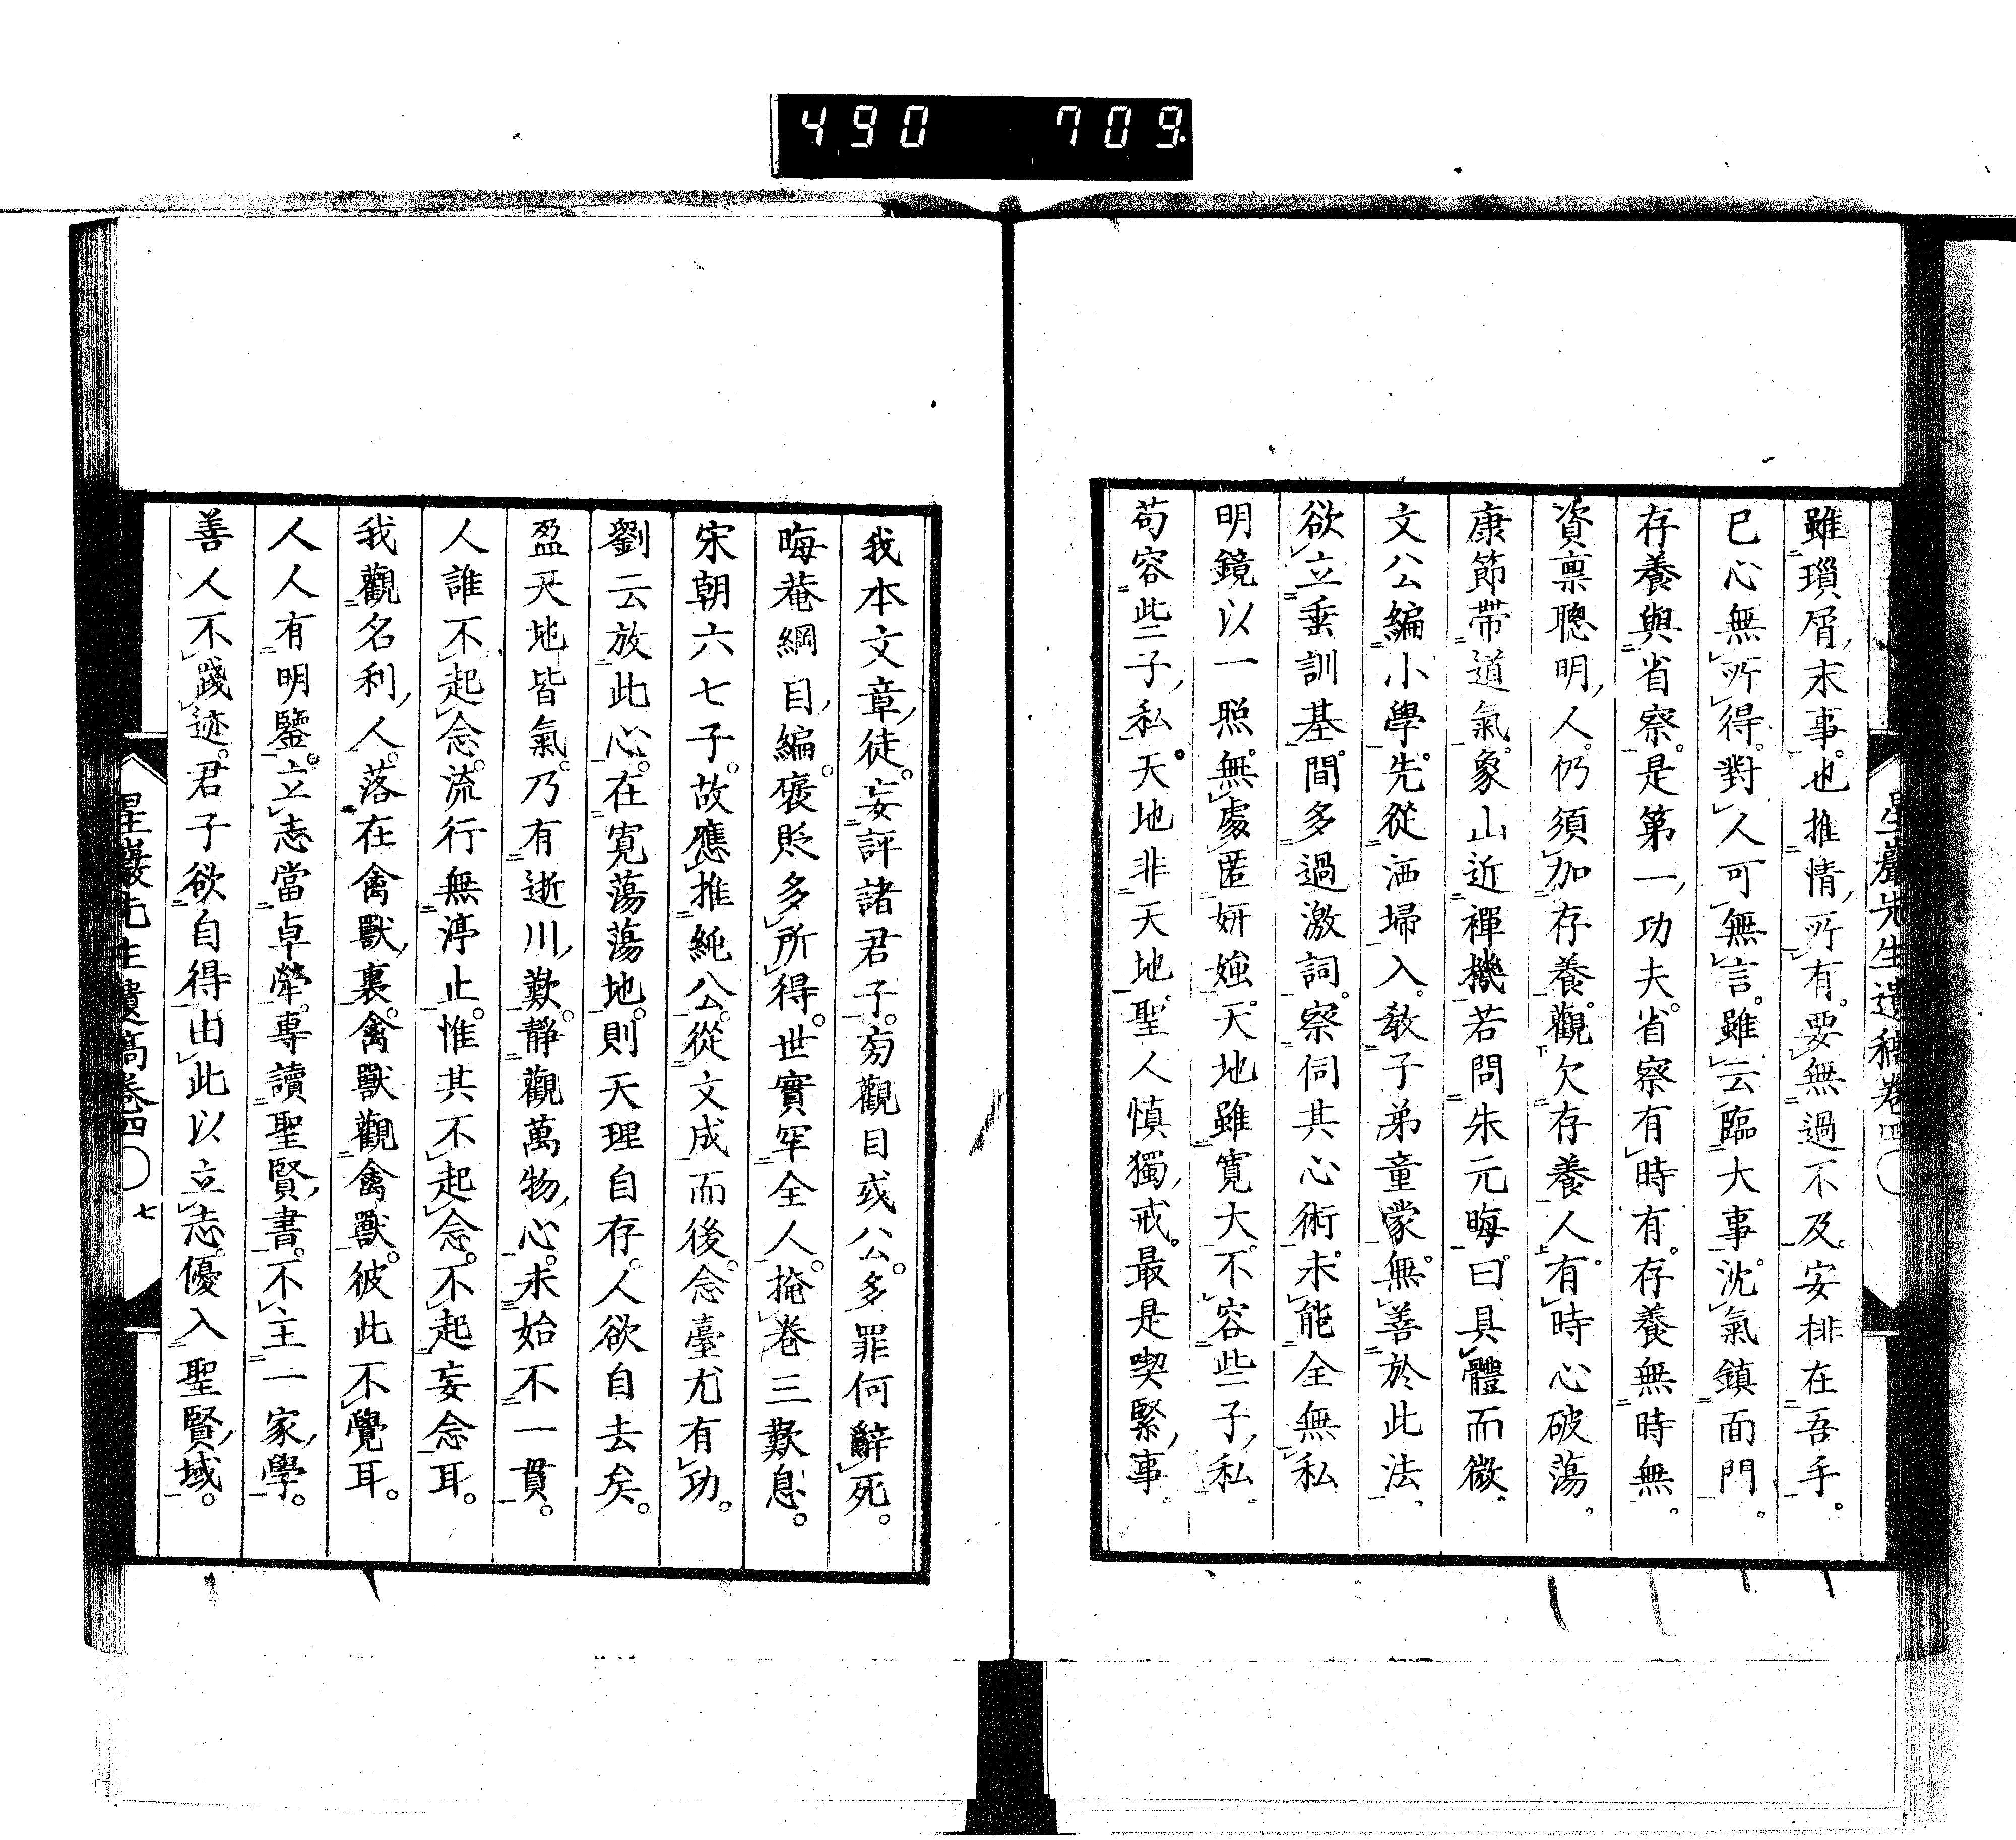 490 709
星巖先生遺稿卷四
雖瑣屑末事也推情所有要無過不及安排在吾手
已心無所得對人可無言雖云臨大事沈氣鎮面門
存養與省察是第一功夫省察有時有存養無時無
資稟聰明人仍須加存養觀欠存養人有時心破蕩
康節帶道氣象山近禪機若問朱元晦曰具體而微
文公編小學先從洒掃入教子弟童蒙無善於此法
欲立垂訓基間多過激詞察伺其心術未能全無私
明鏡以一照無處匿妍媸天地雖寬大不容些子私
苟容些子私天地非天地聖人慎獨戒最是喫緊事
我本文章徒妄評諸君子旁觀目或公多罪何辭死
晦菴綱目編褒貶多所得世實罕全人掩卷三歎息
宋朝六七子故應推純公從文成而後念臺尤有功
劉云放此心在寬蕩蕩地則天理自存人欲自去矣
盈天地皆氣乃有逝川歎靜觀萬物心未始不一貫
人誰不起念流行無渟止惟其不起念不起妄念耳
我觀名利人落在禽獸裏禽獸觀禽獸彼此不覺耳
人人有明鑒立志當卓犖專讀聖賢書不主一家學
善人不踐迹君子欲自得由此以立志優入聖賢域
星巖先生遺稿卷四 七